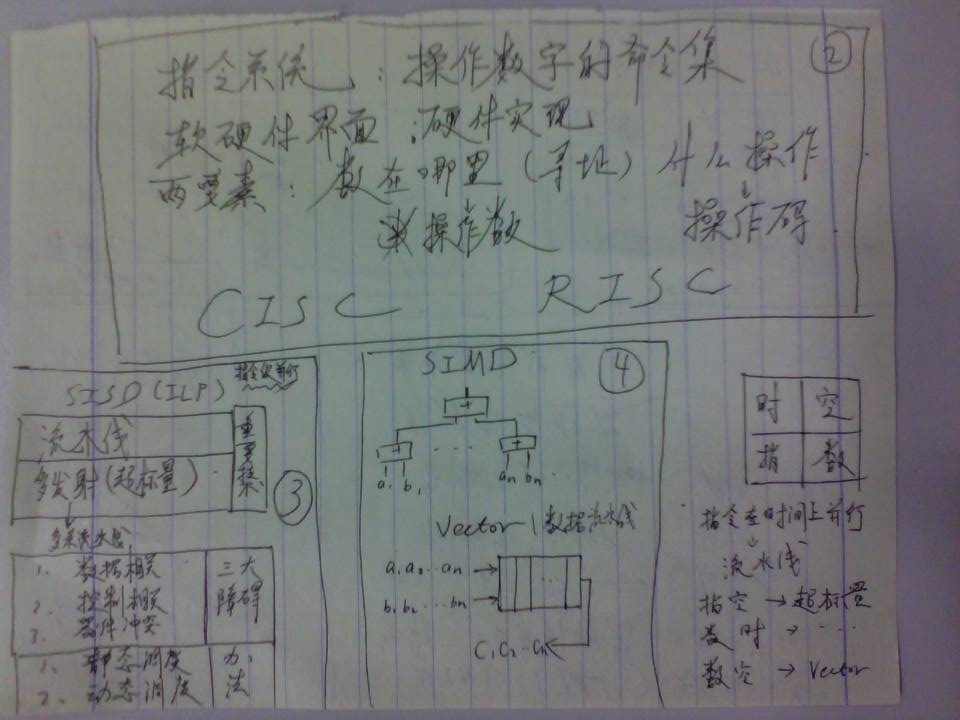 ②
指令系统：操作数字的命令集
软硬件界面：硬件实现
两要素：数在哪里（寻址）什么操作
操作数 操作码
CISC RISC
SISD(ILP) 指令级并行
流水线
多发射(超标量)
③
多条流水线
1. 数据相联
2. 控制相联
3. 器件冲突
三大
障碍
1. 静态调度
2. 动态调度
方法
SIMD ④
+
+ … +
a₁ b₁ an bn
Vector | 数据流水线
a₁a₂…an
b₁b₂…bn
C₁C₂…Cn
时 空
指 数
指令在时间上并行
流水线
指空→超标量
数时→…
数空→Vector